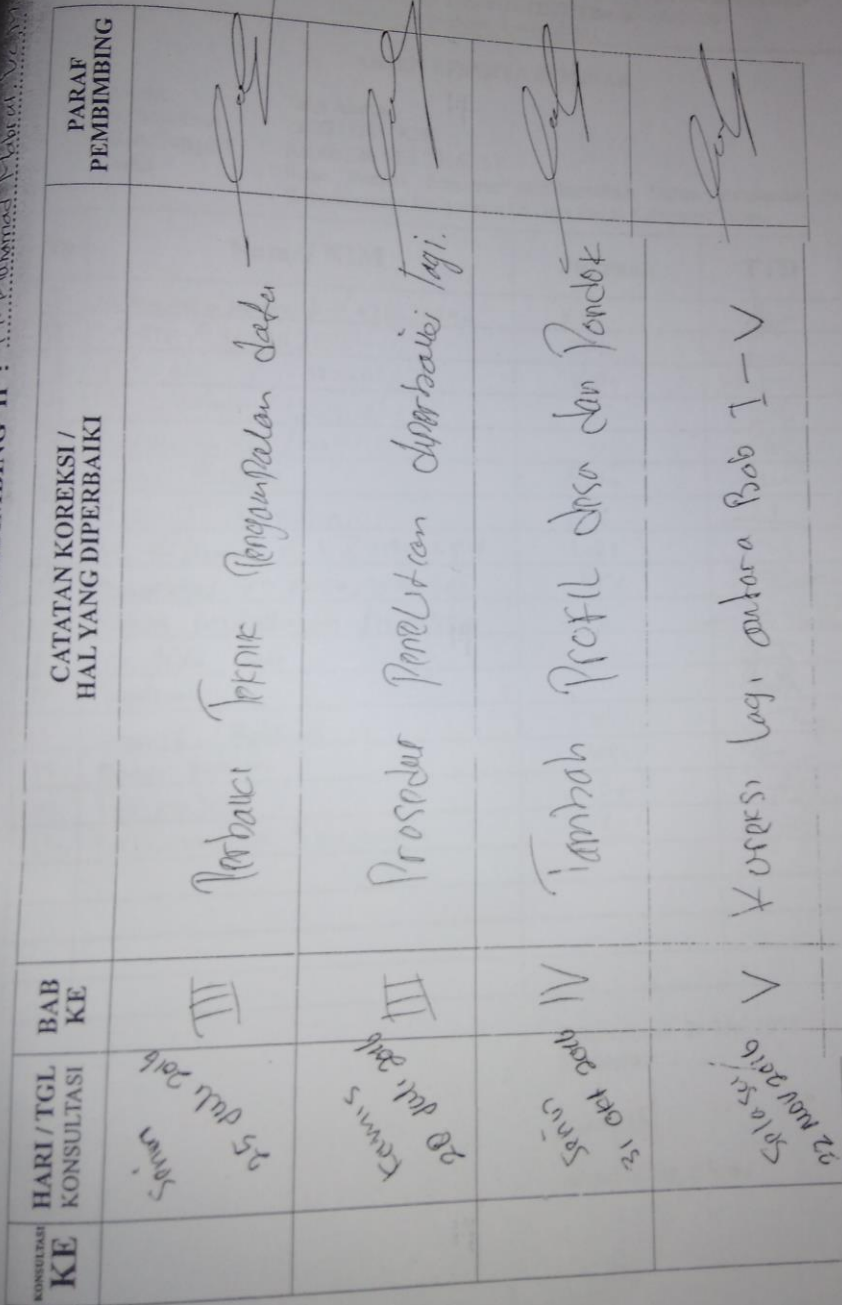 KONSULTASI
KE
HARI / TGL
KONSULTASI
BAB
KE
CATATAN KOREKSI /
HAL YANG DIPERBAIKI
PARAF
PEMBIMBING
Senin
25 Juli 2016
III
Perbaiki Teknik Pengumpulan data
Kamis
28 Juli 2016
III
Prosedur Penelitian diperbaiki lagi.
Senin
31 Okt 2016
IV
Tambah Profil desa dan Pondok
Selasa
22 Nov 2016
V
Koreksi lagi antara Bab I - V